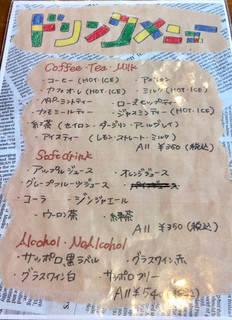 ドリンクメニュー
Coffee・Tea・Milk
・コーヒー(HOT・ICE)
・カフェオレ(HOT・ICE) ・ミルク(HOT・ICE)
・ローズヒップティー
・カモミールティー ・ジャスミンティー(HOT・ICE)
・紅茶(セイロン・ダージリン・アールグレイ)
・アイスティー(レモン・ストレート・ミルク)
All ¥350(税込)
Softdrink
・アップルジュース ・オレンジジュース
・グレープフルーツジュース
・コーラ ・ジンジャエール
・ウーロン茶 ・緑茶
All ¥350(税込)
Alcohol・NoAlcohol
・サッポロ黒ラベル ・グラスワイン赤
・グラスワイン白 ・サッポロフリー
All ¥54